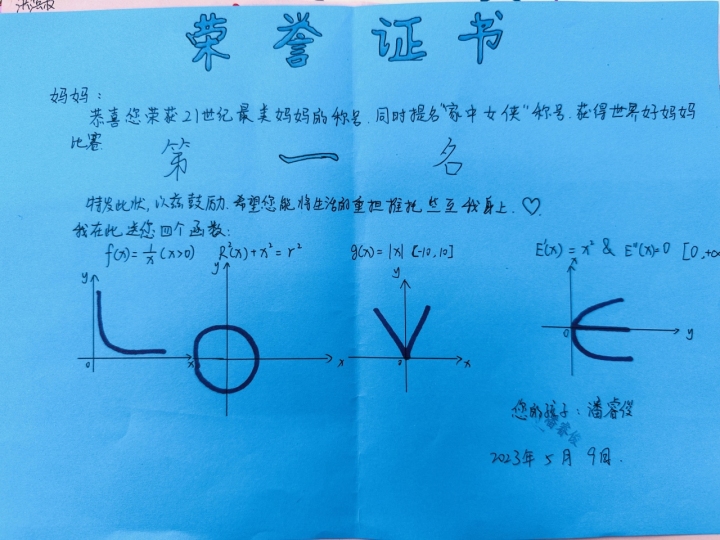 荣誉证书
妈妈：
恭喜您荣获21世纪最美妈妈的称号.同时提名"家中女侠"称号.获得世界好妈妈
比赛
第一名
特发此状,以兹鼓励.希望您能将生活的重担推托些至我身上.♡
我在此送您四个函数:
f(x)=1/x (x>0) R²(x)+x²=r² g(x)=|x| [-10,10] E'(x)=x² & E"(x)=0 [0,+∞
y x 0
y x
y x 0
x y 0
您的孩子:潘睿俊
2023年5月9日.